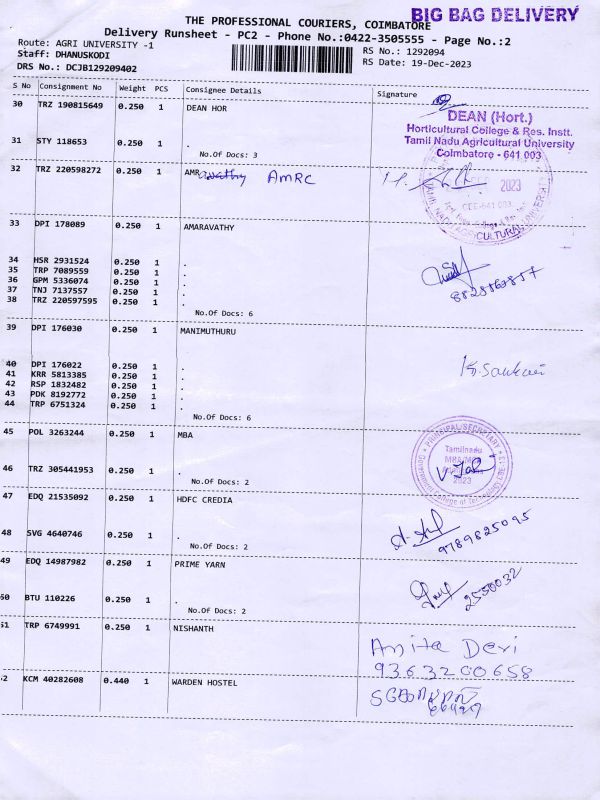 BIG BAG DELIVERY
THE PROFESSIONAL COURIERS, COIMBATORE
Delivery Runsheet - PC2 - Phone No.:0422-3505555 - Page No.:2
Route: AGRI UNIVERSITY -1
RS No.: 1292094
Staff: DHANUSKODI
RS Date: 19-Dec-2023
DRS No.: DCJB129209402
S No Consignment No Weight PCS Consignee Details Signature
30 TRZ 190815649 0.250 1 DEAN HOR
DEAN (Hort.)
Horticultural College & Res. Instt.
Tamil Nadu Agricultural University
Coimbatore - 641 003
31 STY 118653 0.250 1 .
No.Of Docs: 3
32 TRZ 220598272 0.250 1 AMRavathy AMRC
2023
TAMIL NADU AGRICULTURAL UNIVERSITY
33 DPI 178089 0.250 1 AMARAVATHY
34 HSR 2931524 0.250 1 .
35 TRP 7089559 0.250 1 .
36 GPM 5336074 0.250 1 .
37 TNJ 7137557 0.250 1 .
38 TRZ 220597595 0.250 1 .
No.Of Docs: 6
39 DPI 176030 0.250 1 MANIMUTHURU
40 DPI 176022 0.250 1 .
41 KRR 5813385 0.250 1 .
42 RSP 1832482 0.250 1 .
43 PDK 8192772 0.250 1 .
44 TRP 6751324 0.250 1 .
No.Of Docs: 6
45 POL 3263244 0.250 1 MBA
PRINCIPAL/SECRETARY
Tamilnadu
2023
46 TRZ 305441953 0.250 1 .
No.Of Docs: 2
47 EDQ 21535092 0.250 1 HDFC CREDIA
9789825095
48 SVG 4640746 0.250 1 .
No.Of Docs: 2
49 EDQ 14987982 0.250 1 PRIME YARN
2550032
50 BTU 110226 0.250 1 .
No.Of Docs: 2
51 TRP 6749991 0.250 1 NISHANTH
Anita Devi
9363200658
52 KCM 40282608 0.440 1 WARDEN HOSTEL